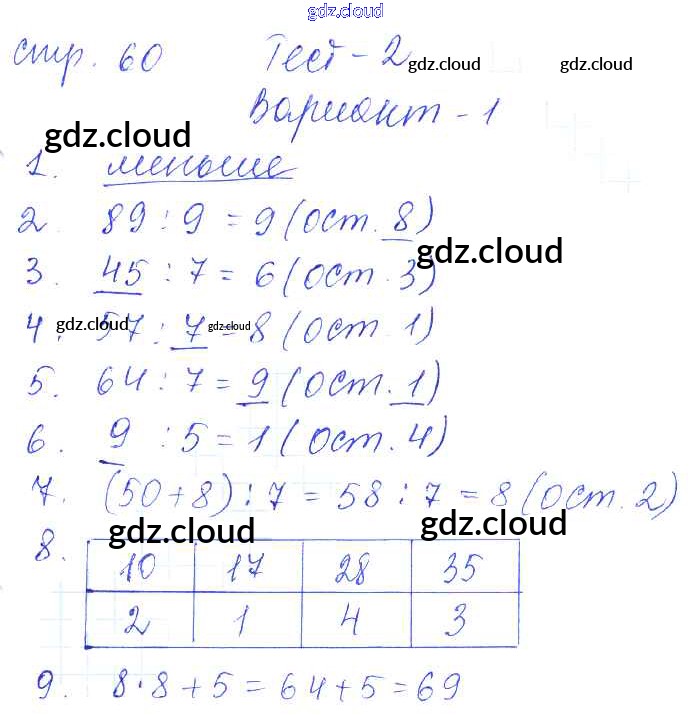 gdz.cloud
стр. 60 Тест-2 gdz.cloud gdz.cloud
Вариант-1
gdz.cloud
1. меньше
2. 89 : 9 = 9 (ост. 8)
gdz.cloud
3. 45 : 7 = 6 (ост. 3)
4. gdz.cloud 57 : 7 gdz.cloud = 8 (ост. 1)
5. 64 : 7 = 9 (ост. 1)
6. 9 : 5 = 1 (ост. 4)
7. (50 + 8) : 7 = 58 : 7 = 8 (ост. 2)
gdz.cloud gdz.cloud
8. 10 17 28 35
2 1 4 3
9. 8 · 8 + 5 = 64 + 5 = 69